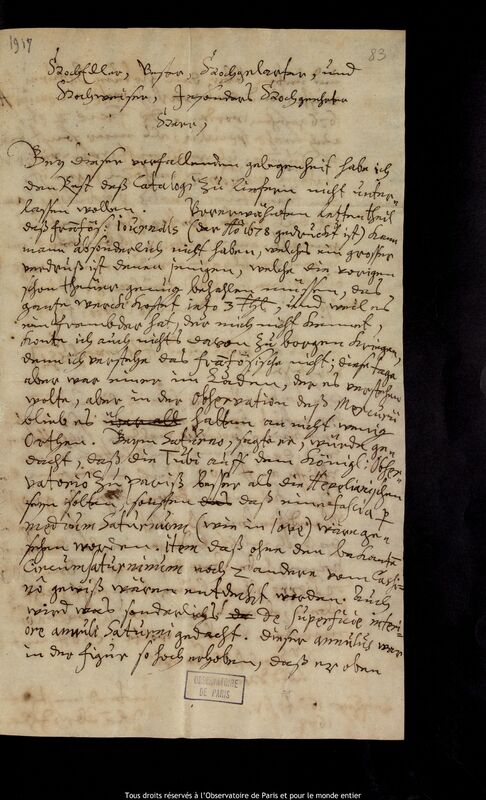 1917
83
HochEdler, Vester, Hochgelarter, und
Hochweiser, Insonders Hochgeehrter
Herr,
Bey dieser vorfallenden gelegenheit habe ich
den Rest deß Catalogi zu liefern nicht unter-
lassen wollen. Vorerwähnten letten theil
deß französ: Journals (der Aõ 1678 gedruckt ist) kan
mann absonderlich nicht haben, welchs ein grosser
verdruß ist denen jenigen, welche die vorigen
schon theuer genug bezahlen müssen, das
gantze werck kostet itzo 3 Thl, und weil es
ein frembder hat, der mich nicht kennet,
konte ich auch nichts davon zu borgen kriegen,
denn ich verstehe das französische nicht; diese tage
aber war einer im Laden, der es verstehen
wolte, aber in der Observation deß Mercurii
blieb es halten an nicht wenig
Orthen. Beym Saturno, sagte er, würde ge-
dacht, daß die Tubi auf dem Königl: Obser-
vatorio zu Pariß besser als die Hevelianischen
seyn solten, sonsten daß eine fascia p
medium Saturnum (wie in Jove) wäre ge-
sehen worden, item daß ohne den bekanten
Circumsaturninum noch 2 andere vom Cassi-
nô gewiß wären entdeckt worden. Auch
wird was sonderlichs de superficie interi-
ore annuli Saturni gedacht. dieser annulus war
in der figur so hoch erhoben, daß er oben
OBSERVATOIRE
DE PARIS
Tous droits réservés à l'Observatoire de Paris et pour le monde entier